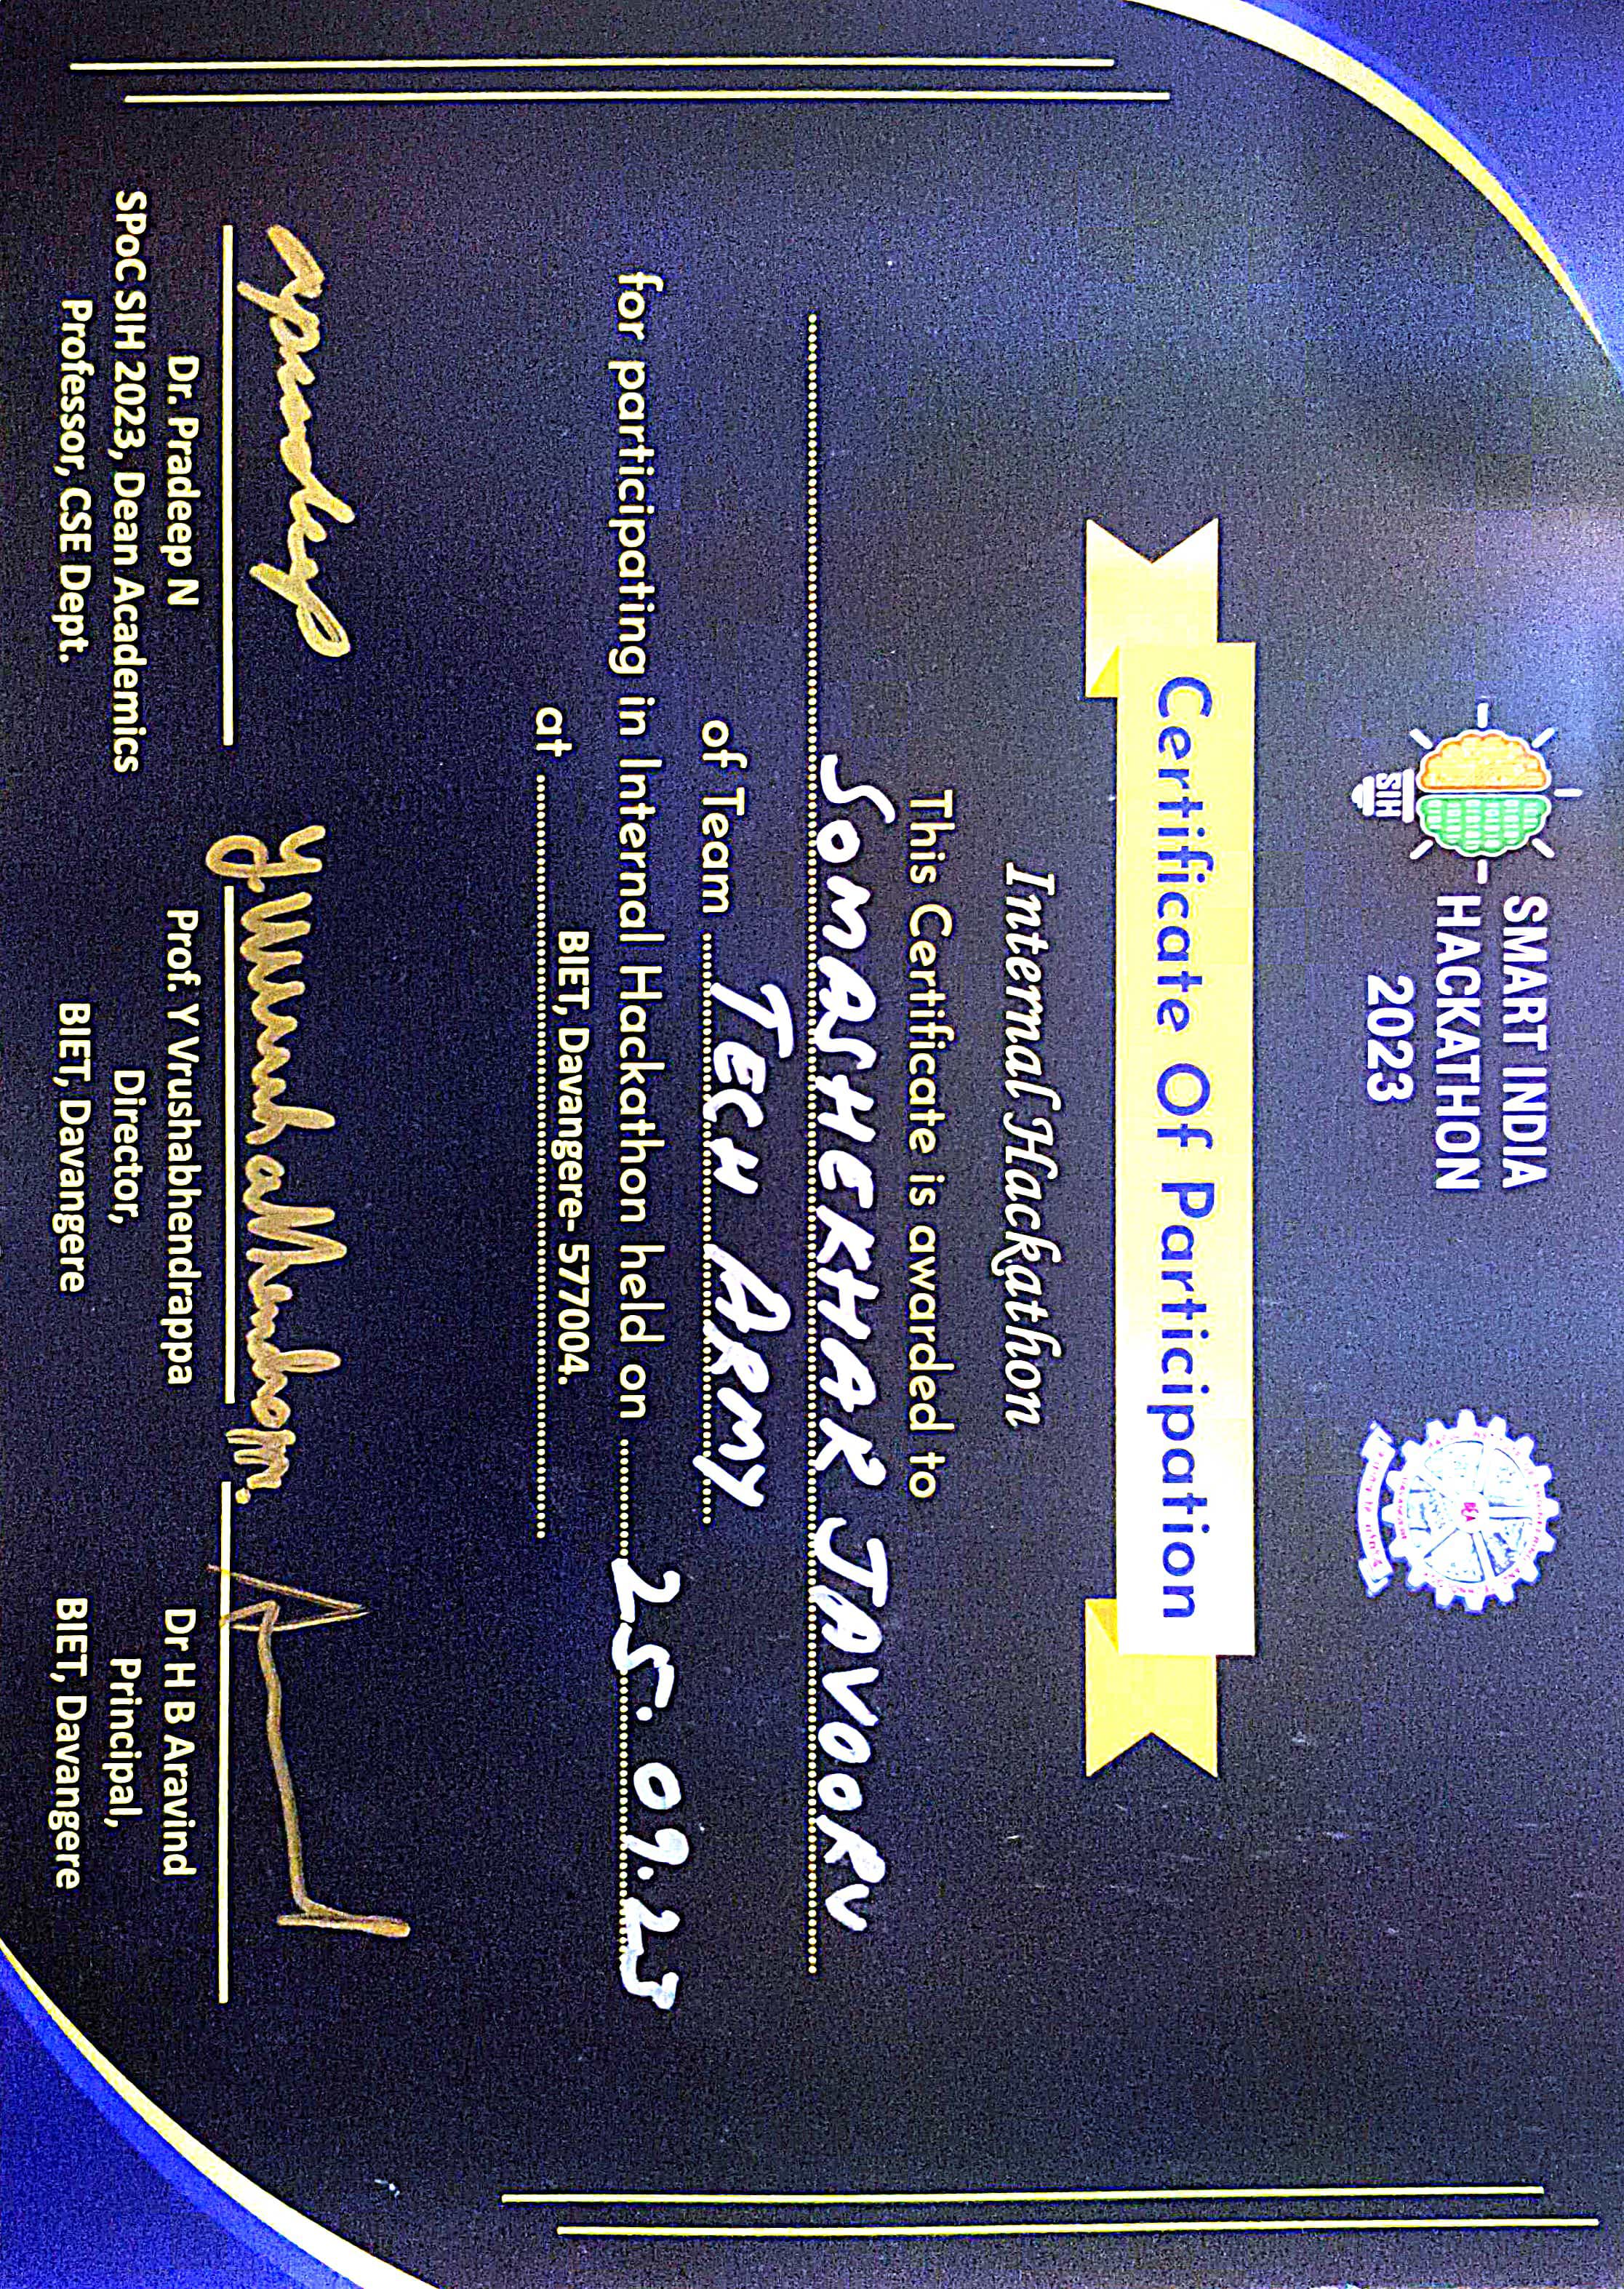 SMART INDIA
HACKATHON
2023
SIH
BEA
Certificate Of Participation
Internal Hackathon
This Certificate is awarded to
SOMASHEKHAR JAVOORU
of Team TECH ARMY
for participating in Internal Hackathon held on 25.09.23
at BIET, Davangere- 577004.
Dr. Pradeep N
SPoC SIH 2023, Dean Academics
Professor, CSE Dept.
Prof. Y Vrushabhendrappa
Director,
BIET, Davangere
Dr H B Aravind
Principal,
BIET, Davangere